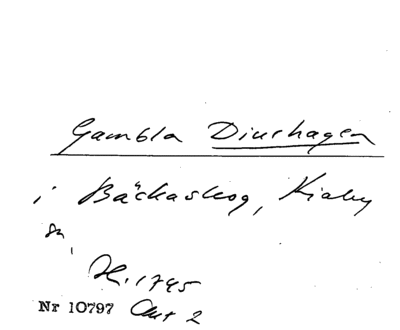 Gambla Diurhagen
i Bäckaskog, Kiaby
sn,
H. 1745
Nr 10797 Akt 2